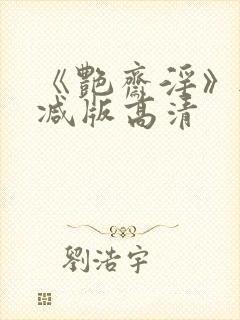 《艷齋淫》
减版高清
劉浩宇